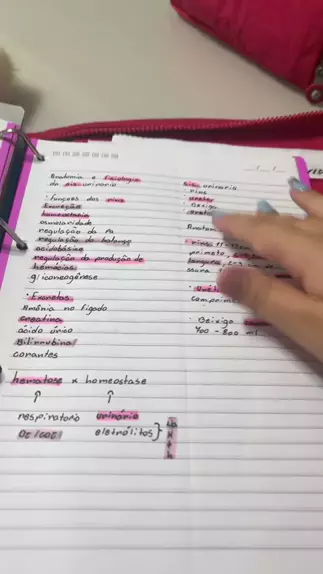 Anatomia e fisiologia
do sis. urinario
· funçoes dos rins
Excreção
homeostasia
osmolaridade
regulação da PA
regulação do balanço
acidobásico
regulação da produção de
hemácias
gliconeogênese
· Excretas
Amônia no fígado
creatina
ácido úrico
Bilirrubina
corantes
hematose x homeostase
respiratorio urinário
O2/CO2 eletrólitos
Sis. urinario
rins
ureter
Bexiga
Anatom
· rins 11-12
· Bexiga
400 - 800 ml